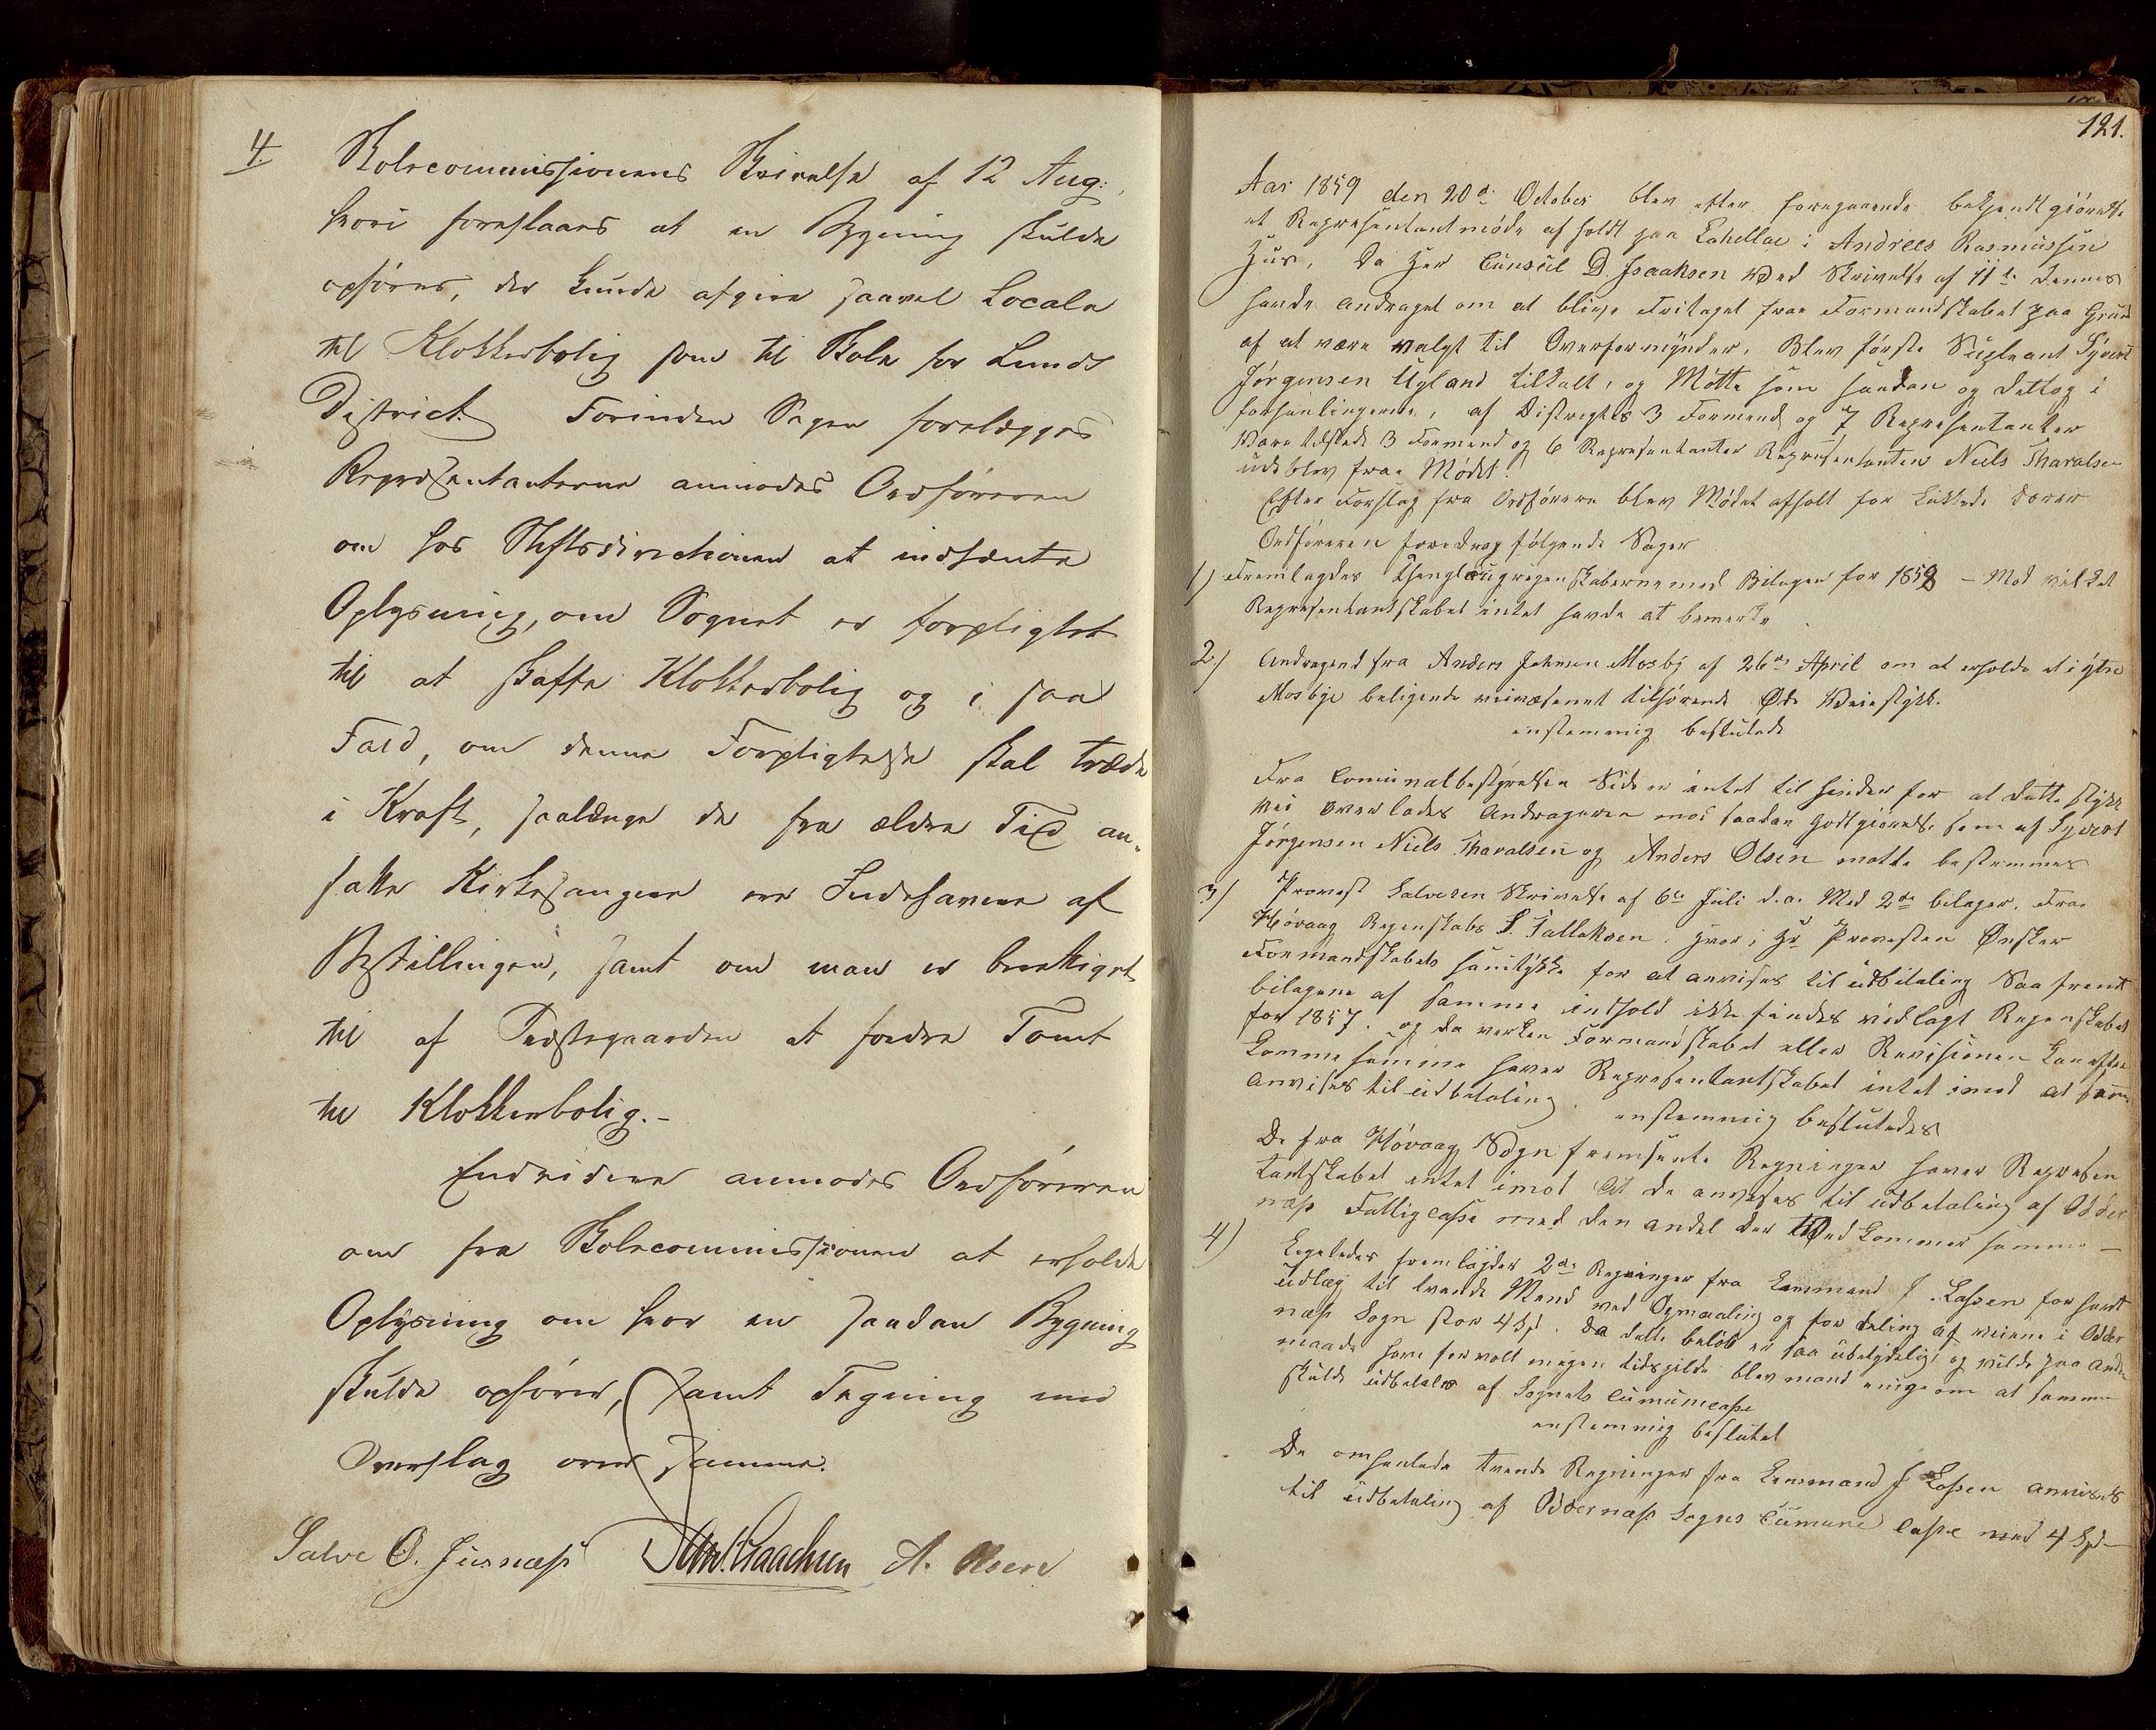 4.
Skolecommissionens Skrivelse af 12 Aug:,
hvori foreslaaes at en Bygning skulde
opføres, der kunde afgive saavel Locale
til Klokkerbolig som til Skole for Lunds
District. Forinden Sagen forelægges
Repræsentanterne anmodes Ordføreren
om hos Stiftsdirectionen at indhente
Oplysning, om Sognet er forpligtet
til at skaffe Klokkerbolig og i saa
Fald, om denne Forpligtelse skal træde
i Kraft, saalænge de fra ældre Tid an-
satte Kirkesangere ere Indehavere af
Bestillingen, samt om man er berettiget
til af Præstegaarden at fordre Tomt
til Klokkerbolig.-
Endvidere anmodes Ordføreren
om fra Skolecommissionen at erholde
Oplysning om hvor en saadan Bygning
skulde opføres, samt Tegning med
Overslag over samme.
Salve O. Jusnæss Isaachsen A. Olsen
121.
Aar 1859 den 20de October blev efter foregaaende bekjendtgiörelse
et Represententmøde af holdt paa Lahellae i Andrees Rasmussen
Hus, da Her Cunsul D. Isaaksen Ved Skrivelse af 11te dennes
havde andraget om at blive Fritaget fraa Formandskabet paa Grund
af at være valgt til Overformynder, Blev første Supleant Syvert
Jørgensen Ugland tilkalt, og Møtte som saadan og deltog i
forhanlingerne, af Distregtes 3 Formend og 7 Representanter
Vare tilstede 3 Formend og 6 Representanter Representanten Niels Tharalsen
udeblev fraa Mødet.
Efter Forslag fra Ordførere blev Mødet afholt for Lukkede Dører
Ordføreren foredrog følgende Sager
1) Fremlagdes Thinglaugregenskaberne med Bilagen for 1858 - Mod vilket
Representantskabet intet havde at bemerke
2.) Andragend fra Anders Johnsen Mosby af 26de April om at erholde et i ytre
Mosbye beligende veivæsenet tilhørende Øde Veiestykk.
enstemmig besluttede
Fra Comunalbestyrelsen Side er intet til hinder for at dette stykk
vei overlades Andrageren mod saadan godtgiörelse som af Syvert
Jørgensen Niels Tharalsen og Anders Olsen motte bestemmes
3) Provest Salvesen Skrivelse af 6te Juli d.a. Med 2de bilager, Fraa
Høvaag Regenskabs S. Tallaksen. hvor i Hr Provesten Ønsker
Formandskabets samtykke for at anvises til udbetaling Saa fremt
bilagene af samme indhold ikke findes vedlagt Regenskabet
for 1857. og da verken Formandskabet eller Revisionen kan efter
komme samme haver Representantskabet intet imod at sam
anvises til udbetaling. enstemmig besluttedes
De fra Høvaag Sogn fremsente Regninger haver Represen
tantskabet entet imod at de anvises til udbetaling af Odder
næss Fattigcasse med den andel der Vedkommer samme —
4) Ligeledes fremlagdes 2de Regninger fra Lensmand J. Lassen for havdt
udlæg til tvende Mend ved Opmaaling og for deling af veiene i Odder
næss Sogn stor 4 Spd. da dette beløb er saa ubetydelig og vilde paa anden
maade have forvolt megen tidspilde blev mand enige om at samme
skulde udbetales af Sognets Cumunecasse
enstemmig beslutet
De omhanlede tvende Regninger fra Lensmand J Lassen anvises
til udbetaling af Oddernæss Sogns Cumune casse med 4 Spd